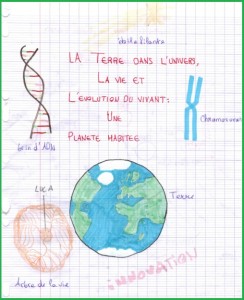 LA TERRE DANS L'UNIVERS,
LA VIE ET
L'ÉVOLUTION DU VIVANT:
UNE
PLANÈTE HABITÉE
Brin d'ADN
Chromosomes
LUCA
Terre
Arbre de la vie
INNOVATION